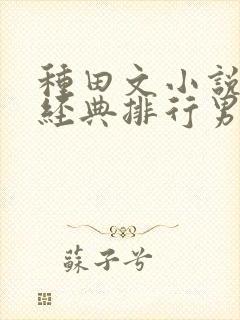 種田文小說
經典排行男
蘇子兮